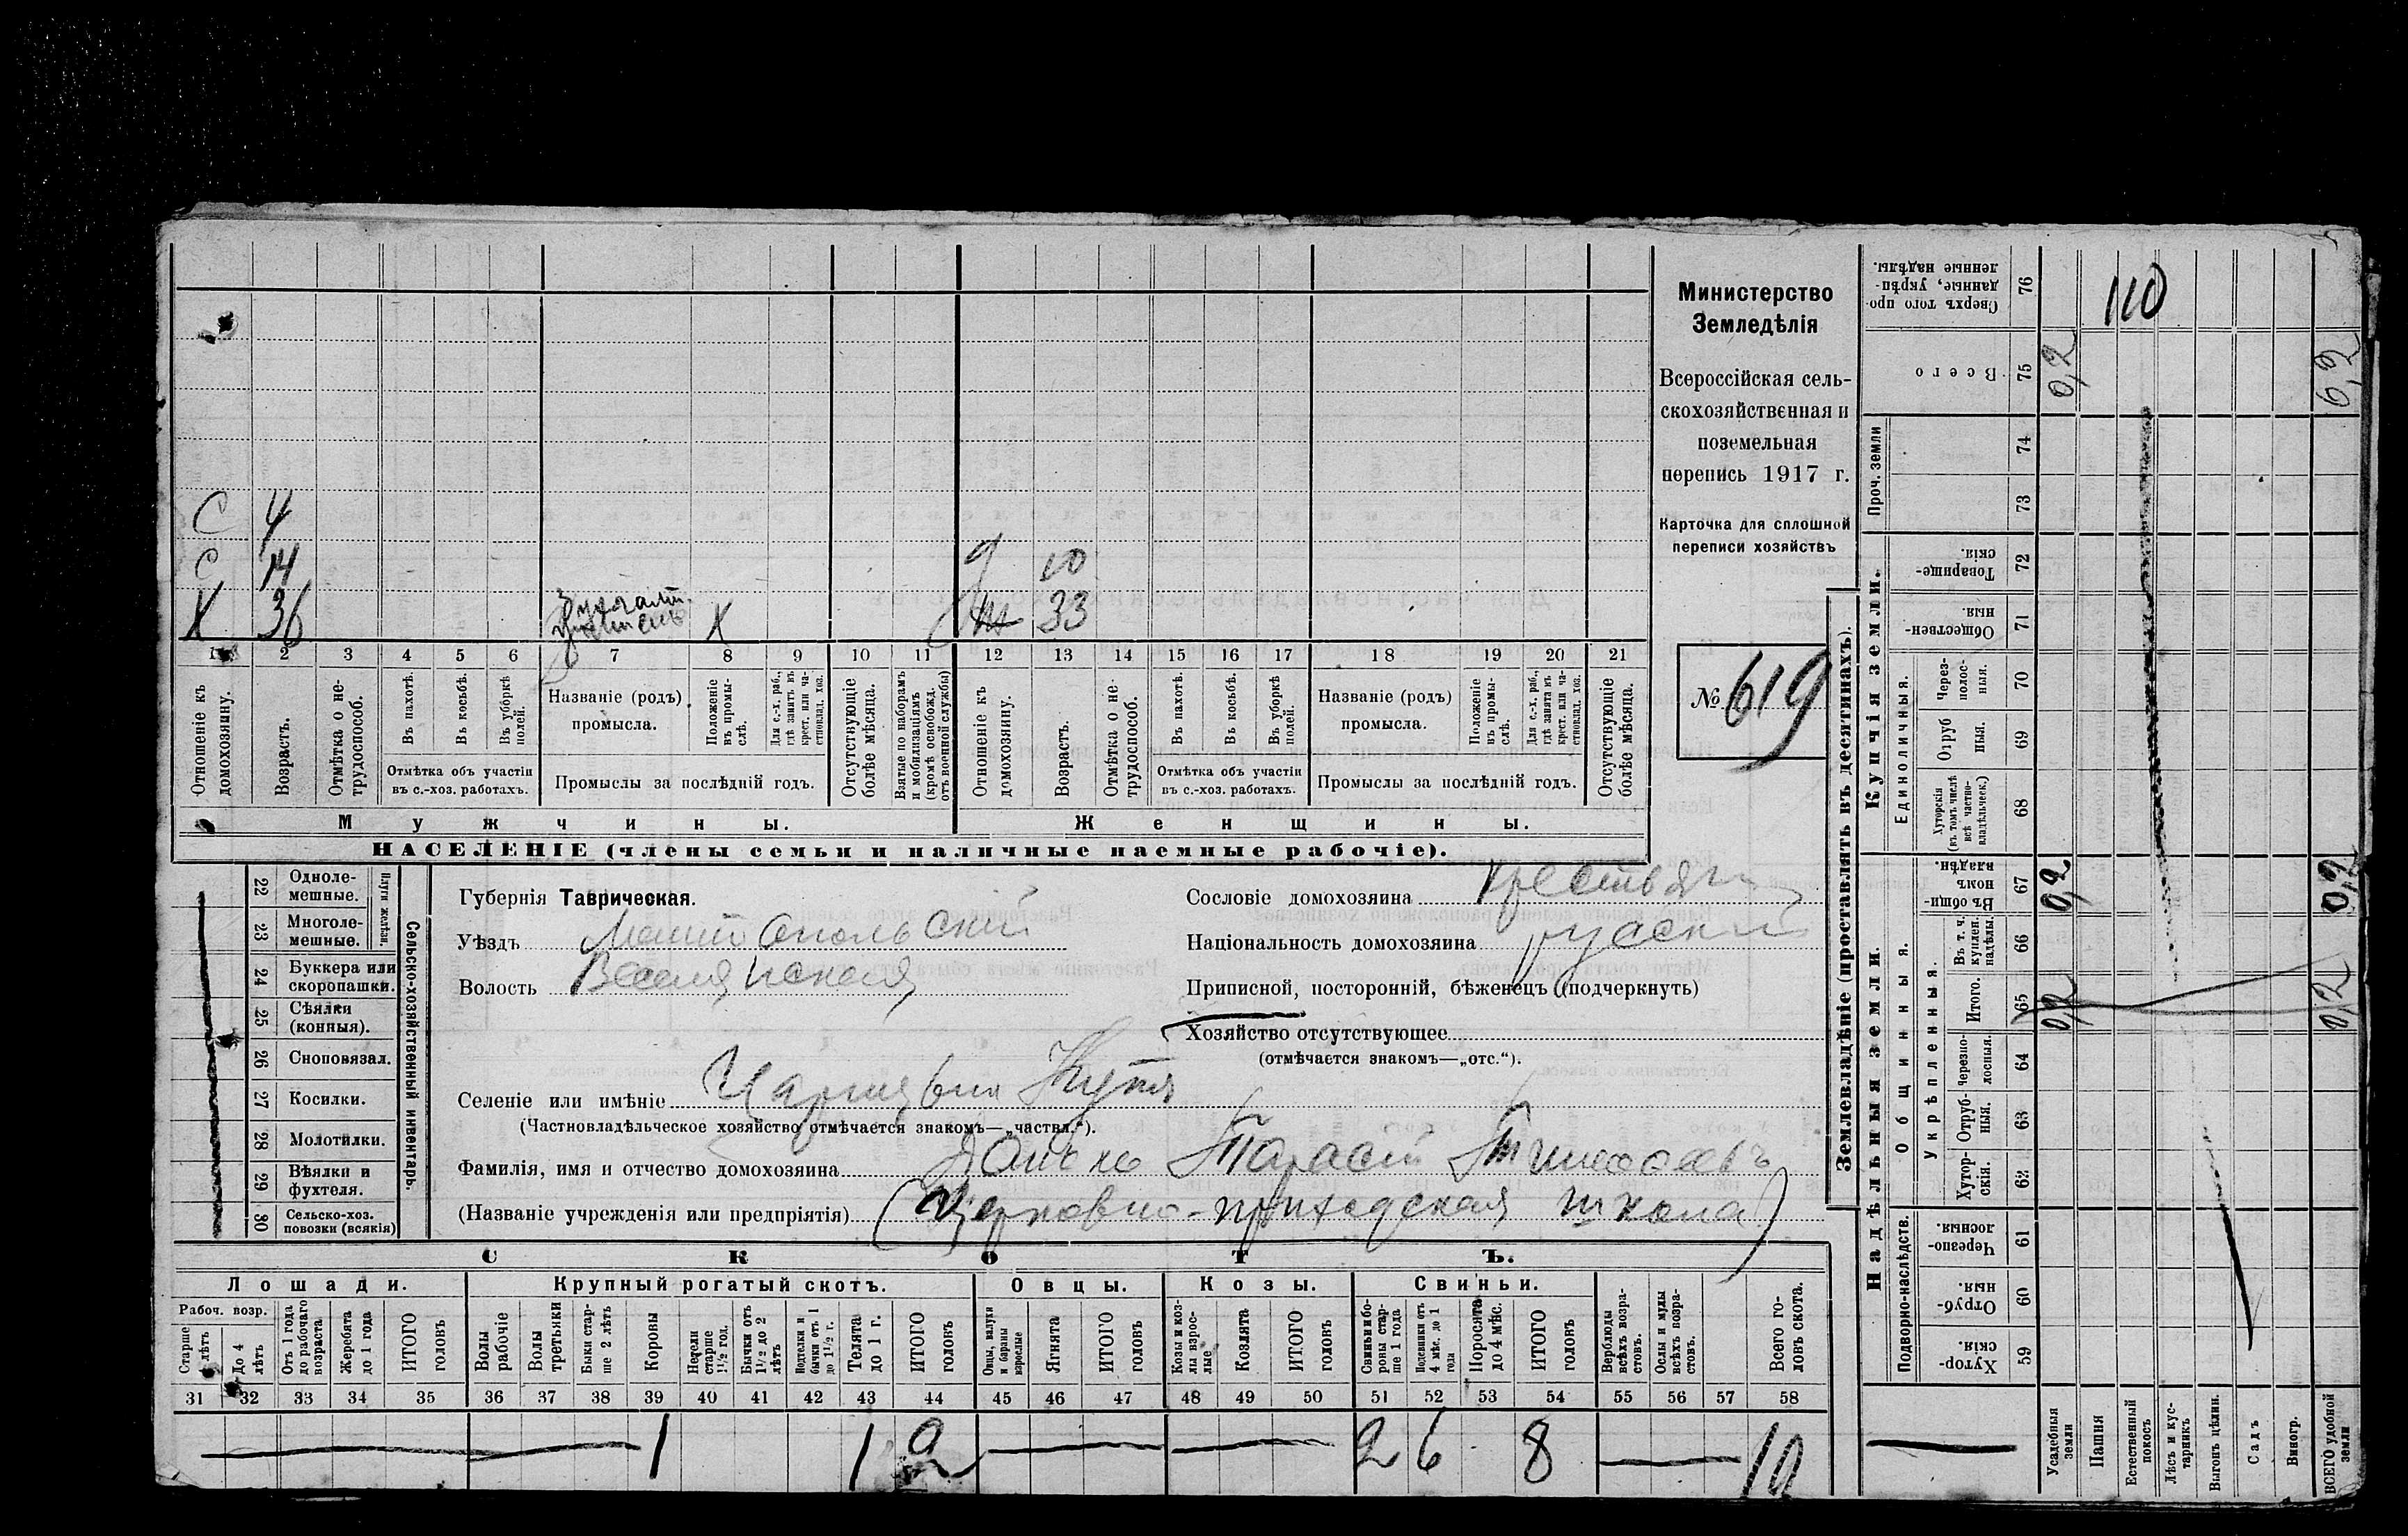 Министерство
Земледѣлія
Всероссійская сель-
скохозяйственная и
поземельная
перепись 1917 г.
Карточка для сплошной
переписи хозяйствъ
№ 619
С 4
С 14 10
Х 36 Х 33
1 2 3 4 5 6 7 8 9 10 11 12 13 14 15 16 17 18 19 20 21
Отношеніе къ домохозяину.
Возрастъ.
Отмѣтка о не-трудоспособ.
Въ пахотѣ.
Въ косьбѣ.
Въ уборкѣ полей.
Отмѣтка объ участіи
въ с.-хоз. работахъ.
Названіе (родъ)
промысла.
Положеніе въ промы-слѣ.
Для с.-х. раб., гдѣ занятъ въ крест. или ча-стновлад. хоз.
Промыслы за послѣдній годъ.
Отсутствующіе болѣе мѣсяца.
Взятые по наборамъ и мобилизаціямъ (кромѣ освобожд. отъ военной службы)
Отношеніе къ домохозяину.
Возрастъ.
Отмѣтка о не-трудоспособ.
Въ пахотѣ.
Въ косьбѣ.
Въ уборкѣ полей.
Отмѣтка объ участіи
въ с.-хоз. работахъ.
Названіе (родъ)
промысла.
Положеніе въ промы-слѣ.
Для с.-х. раб., гдѣ занята въ крест. или ча-стновлад. хоз.
Промыслы за послѣдній годъ.
Отсутствующіе болѣе мѣсяца.
Мужчины. Женщины.
НАСЕЛЕНІЕ (члены семьи и наличные наемные рабочіе).
Сельско-хозяйственный инвентарь.
Плуги желѣзн.
22 Одноле-мешные.
23 Многоле-мешные.
24 Буккера или скоропашки.
25 Сѣялки (конныя).
26 Сноповязал.
27 Косилки.
28 Молотилки.
29 Вѣялки и фухтеля.
30 Сельско-хоз. повозки (всякія)
Губернія Таврическая.
Уѣздъ Мелитопольскій
Волость
Сословіе домохозяина крестьян
Національность домохозяина русскій
Приписной, посторонній, бѣженецъ (подчеркнуть)
Хозяйство отсутствующее
(отмѣчается знакомъ—„отс.“).
Селеніе или имѣніе
(Частновладѣльческое хозяйство отмѣчается знакомъ—„частвл.“).
Фамилія, имя и отчество домохозяина Тарасій Тимофеевъ
(Названіе учрежденія или предпріятія) (Церковно-приходская школа)
СКОТЪ.
Лошади. Крупный рогатый скотъ. Овцы. Козы. Свиньи.
Рабоч. возр.
Старше лѣтъ
До 4 лѣтъ
Отъ 1 года до рабочаго возраста
Жеребята до 1 года
ИТОГО головъ
Волы рабочіе
Волы третьяки
Быки стар-ше 2 лѣтъ
Коровы
Нетели старше 1½ год.
Бычки отъ 1½ до 2 лѣтъ
Подтелки и бычки отъ 1 до 1½ г.
Телята до 1 г.
ИТОГО головъ
Овцы, валухи и бараны взрослые
Ягнята
ИТОГО головъ
Козы и коз-лы взрос-лые
Козлята
ИТОГО головъ
Свиньи и бо-ровы стар-ше 1 года
Подсвинки отъ 4 мѣс. до 1 года
Поросята до 4 мѣс.
ИТОГО головъ
Верблюды всѣхъ возра-стовъ.
Ослы и мулы всѣхъ возра-стовъ.
Всего го-ловъ скота.
31 32 33 34 35 36 37 38 39 40 41 42 43 44 45 46 47 48 49 50 51 52 53 54 55 56 57 58
1 1 2 2 6 8 10
Землевладѣніе (проставлять въ десятинахъ).
Купчія земли.
Надѣльныя земли.
Сверхъ того про-данные, укрѣп-ленные надѣлы. 76 110
Всего 75 0,2 0,2
Проч. земли 74 73
Товарище-скія. 72
Обществен-ныя. 71
Единоличныя.
Через-полос-ныя. 70
Отруб-ныя. 69
Хуторскія (въ томъ числѣ всѣ частно-владѣльчек.) 68
Общинныя.
Въ общи-номъ владѣн. 67 0,2 0,2
Укрѣпленныя.
Въ т. ч. куплен. надѣлы 66
Итого. 65 0,2 0,2
Черезпо-лосныя. 64
Отруб-ныя. 63
Хутор-скія. 62
Подворно-наслѣдств.
Черезпо-лосныя. 61
Отруб-ныя. 60
Хутор-скія. 59
Усадебныя земли
Пашня
Естественный покосъ
Лѣсъ и кус-тарникъ
Выгонъ цѣлин.
Садъ
Виногр.
ВСЕГО удобной земли